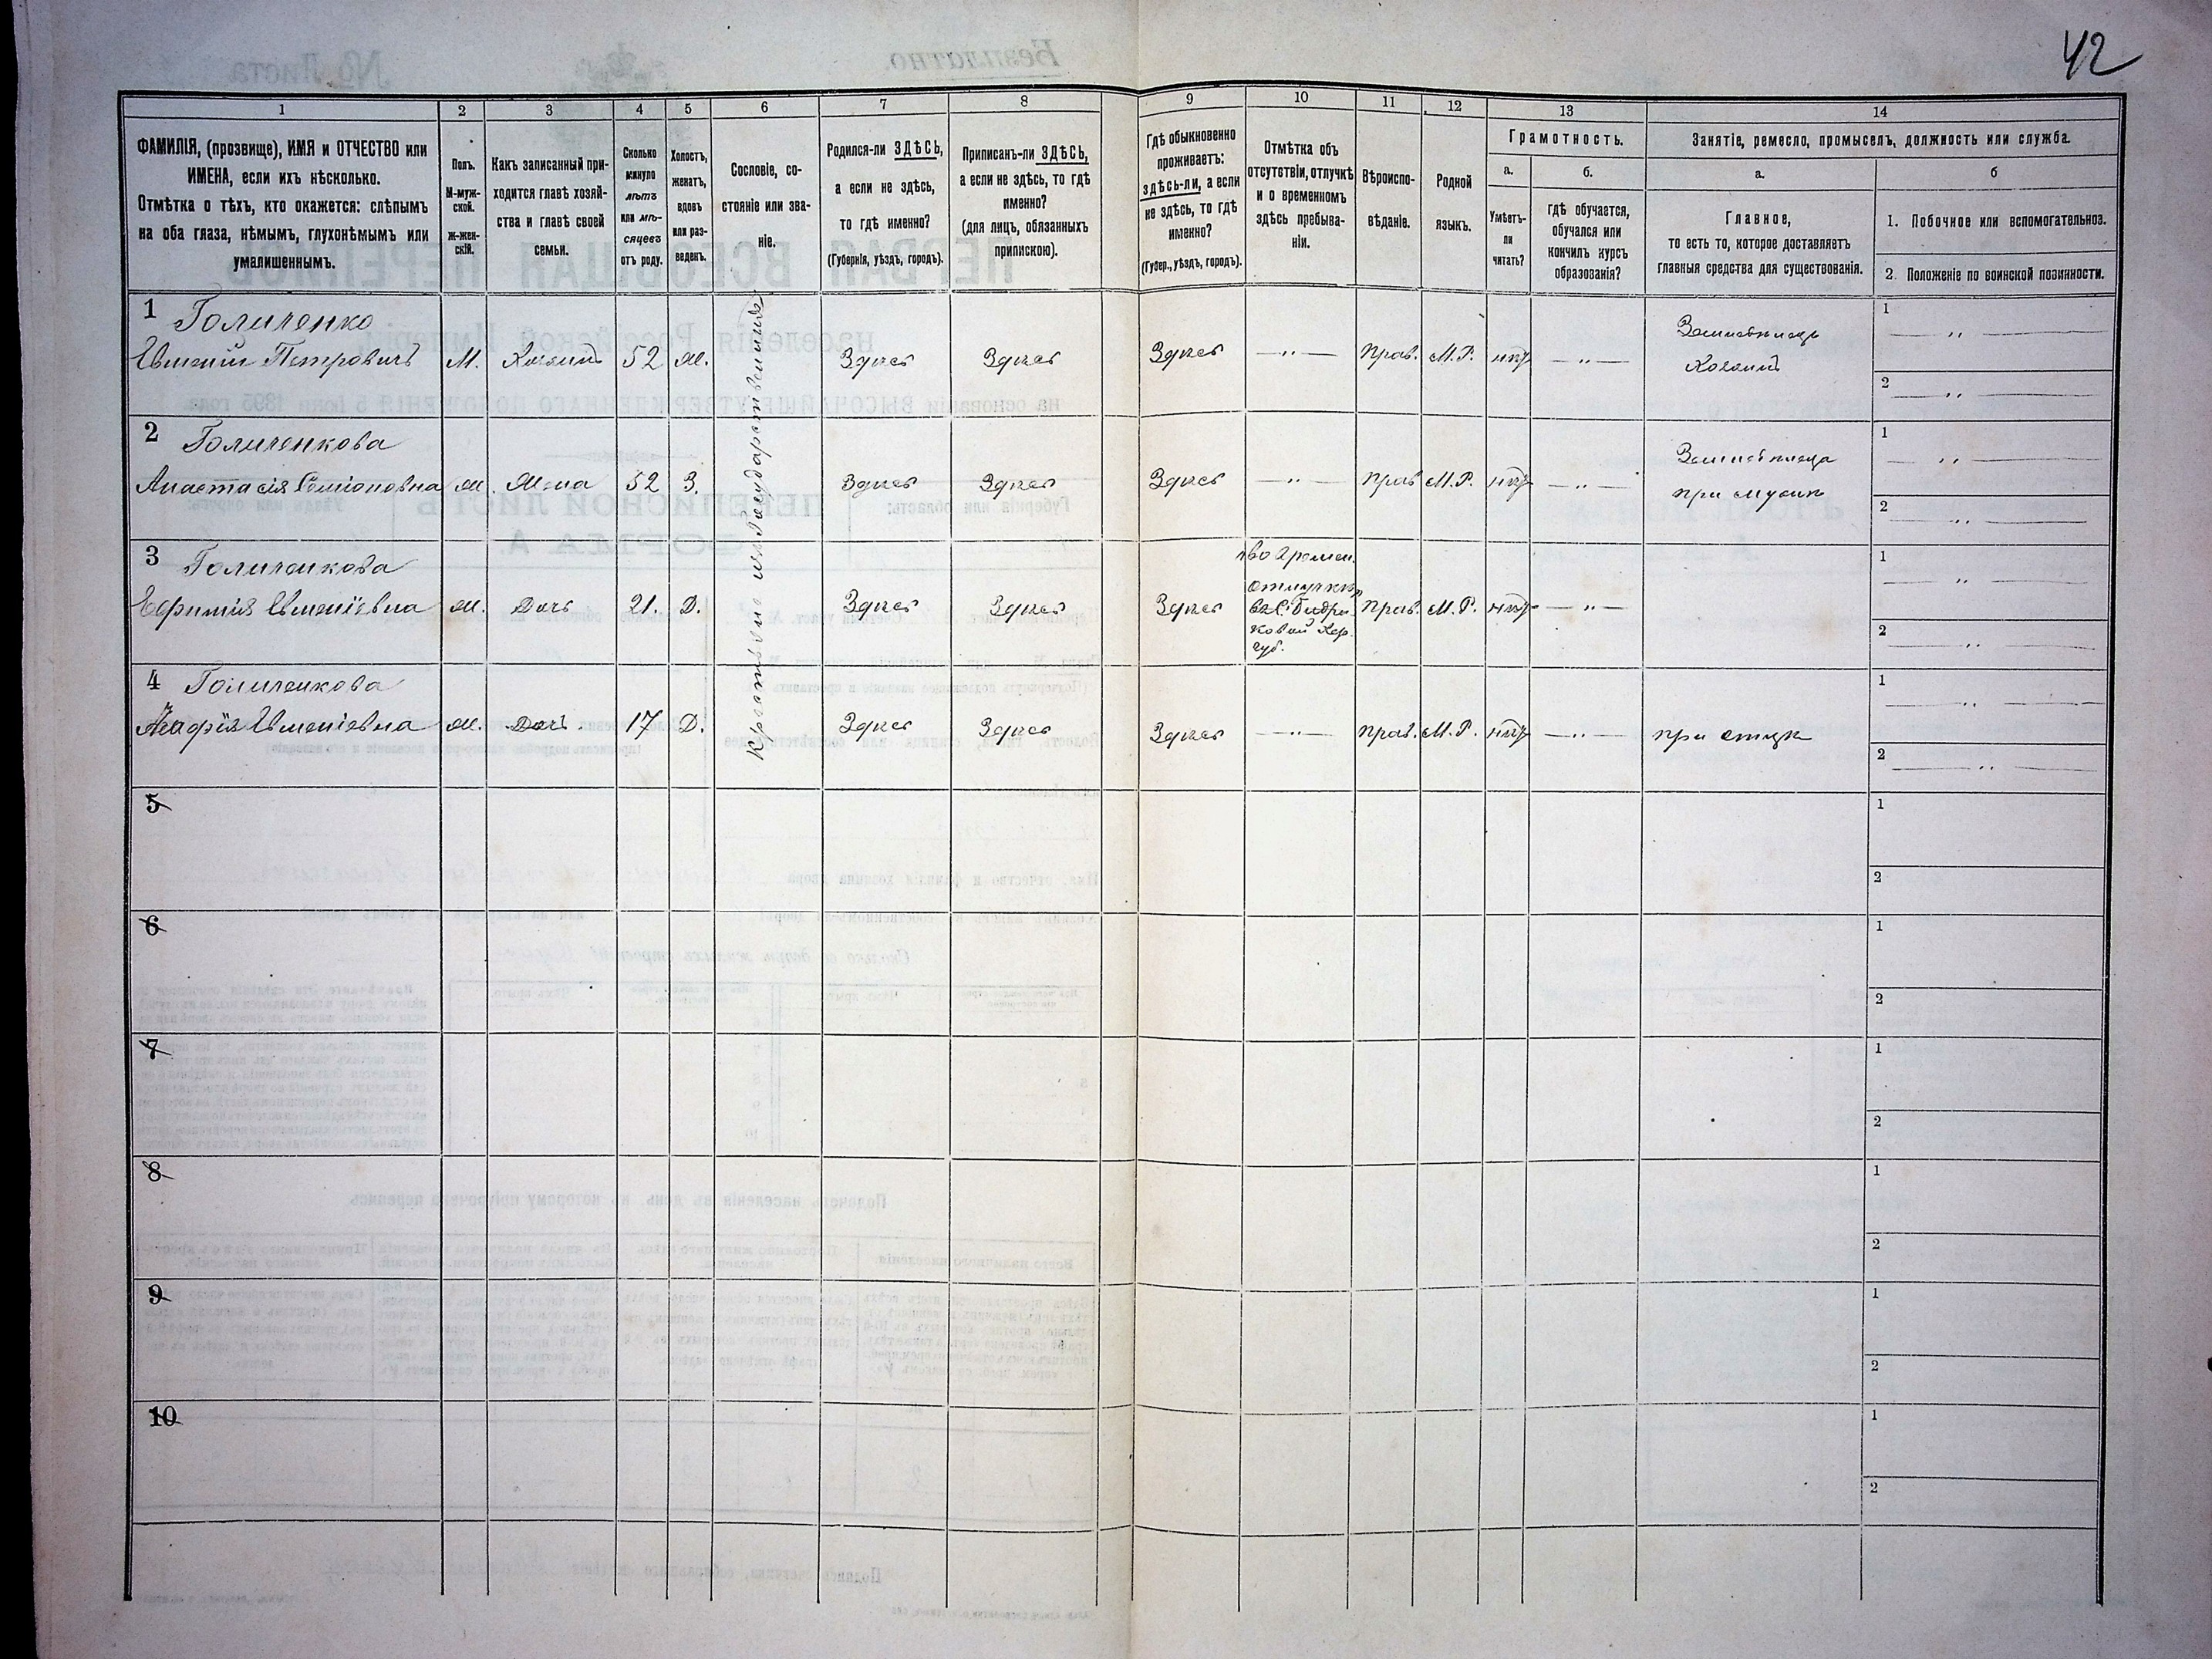 42
1 2 3 4 5 6 7 8 9 10 11 12 13 14
ФАМИЛІЯ, (прозвище), ИМЯ и ОТЧЕСТВО или
ИМЕНА, если ихъ нѣсколько.
Отмѣтка о тѣхъ, кто окажется: слѣпымъ
на оба глаза, нѣмымъ, глухонѣмымъ или
умалишеннымъ.
Полъ.
М-муж-
ской.
Ж-жен-
скій.
Какъ записанный при-
ходится главѣ хозяй-
ства и главѣ своей
семьи.
Сколько
минуло
лѣтъ
или мѣ-
сяцевъ
отъ роду.
Холостъ,
женатъ,
вдовъ
или раз-
веденъ.
Сословіе, со-
стояніе или зва-
ніе.
Родился-ли ЗДѢСЬ,
а если не здѣсь,
то гдѣ именно?
(Губернія, уѣздъ, городъ).
Приписанъ-ли ЗДѢСЬ,
а если не здѣсь, то гдѣ
именно?
(для лицъ, обязанныхъ
припискою).
Гдѣ обыкновенно
проживаетъ:
здѣсь-ли, а если
не здѣсь, то гдѣ
именно?
(Губер., уѣздъ, городъ).
Отмѣтка объ
отсутствіи, отлучкѣ
и о временномъ
здѣсь пребыва-
ніи.
Вѣроиспо-
вѣданіе.
Родной
языкъ.
Грамотность.
а.
Умѣетъ-
ли
читать?
б.
гдѣ обучается,
обучался или
кончилъ курсъ
образованія?
Занятіе, ремесло, промыселъ, должность или служба.
а.
Главное,
то есть то, которое доставляетъ
главныя средства для существованія.
б
1. Побочное или вспомогательное.
2. Положеніе по воинской повинности.
1 Голиченко
Евменій Петровичъ М. Хозяинъ 52 ж. Здѣсь Здѣсь Здѣсь — " — Прав. М.Р. нѣтъ — " —
Земледѣлецъ
Хозяинъ
1 — " —
2 — " —
Крестьяне изъ Государственныхъ
2 Голиченкова
Анастасія Семіоновна ж. Жена 52 З. Здѣсь Здѣсь Здѣсь — " — Прав М.Р. нѣтъ — " —
Земледѣлица
при мужѣ
1 — " —
2 — " —
3 Голиченкова
Ефимія Евменіевна ж. Дочь 21. Д. Здѣсь Здѣсь Здѣсь
времен.
отлучкѣ
Хер.
губ.
Прав. М.Р. нѣтъ — " —
1 — " —
2 — " —
4 Голиченкова
Агафія Евменіевна ж. Дочь. 17 Д. Здѣсь Здѣсь Здѣсь — " — Прав. М.Р. нѣтъ — " — при отцѣ
1 — " —
2 — " —
5
1
2
6
1
2
7
1
2
8
1
2
9
1
2
10
1
2